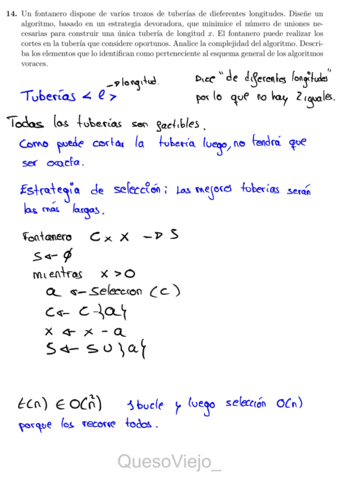 14. Un fontanero dispone de varios trozos de tuberías de dieferentes longitudes. Diseñe un
algoritmo, basado en un estrategia devoradora, que minimice el número de uniones ne-
cesarias para construir una única tubería de longitud x. El fontanero puede realizar los
cortes en la tubería que considere oportunos. Analice la complejidad del algoritmo. Descri-
ba los elementos que lo identifican como perteneciente al esquema general de los algoritmos
voraces.
→longitud.
Tuberías < l >
Dice "de diferentes longitudes"
por lo que no hay 2 iguales.
Todas las tuberías son factibles.
Como puede cortar la tubería luego, no tendrá que
ser exacta.
Estrategia de selección: Las mejores tuberías serán
las más largas.
Fontanero C x X → S
S ← ∅
mientras x > 0
a ← Seleccion (C)
C ← C \ {a}
x ← x - a
S ← S ∪ {a}
t(n) ∈ O(n²) 1 bucle y luego selección O(n)
porque los recorre todos.
QuesoViejo_